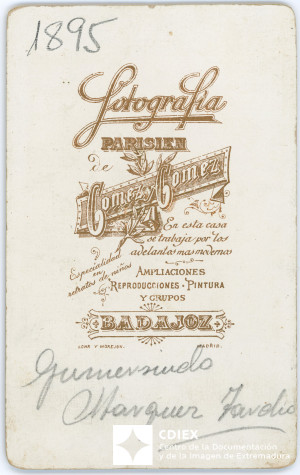 1895
Fotografia
PARISIEN
de
Gomez y Gomez
En esta casa
se trabaja por los
adelantos mas modernos
Especialidad
en
retratos de niños
AMPLIACIONES
REPRODUCCIONES - PINTURA
Y GRUPOS
BADAJOZ
MADRID.
Gumersindo
Marquez
CDIEX
Centro de la Documentación
y de la Imagen de Extremadura